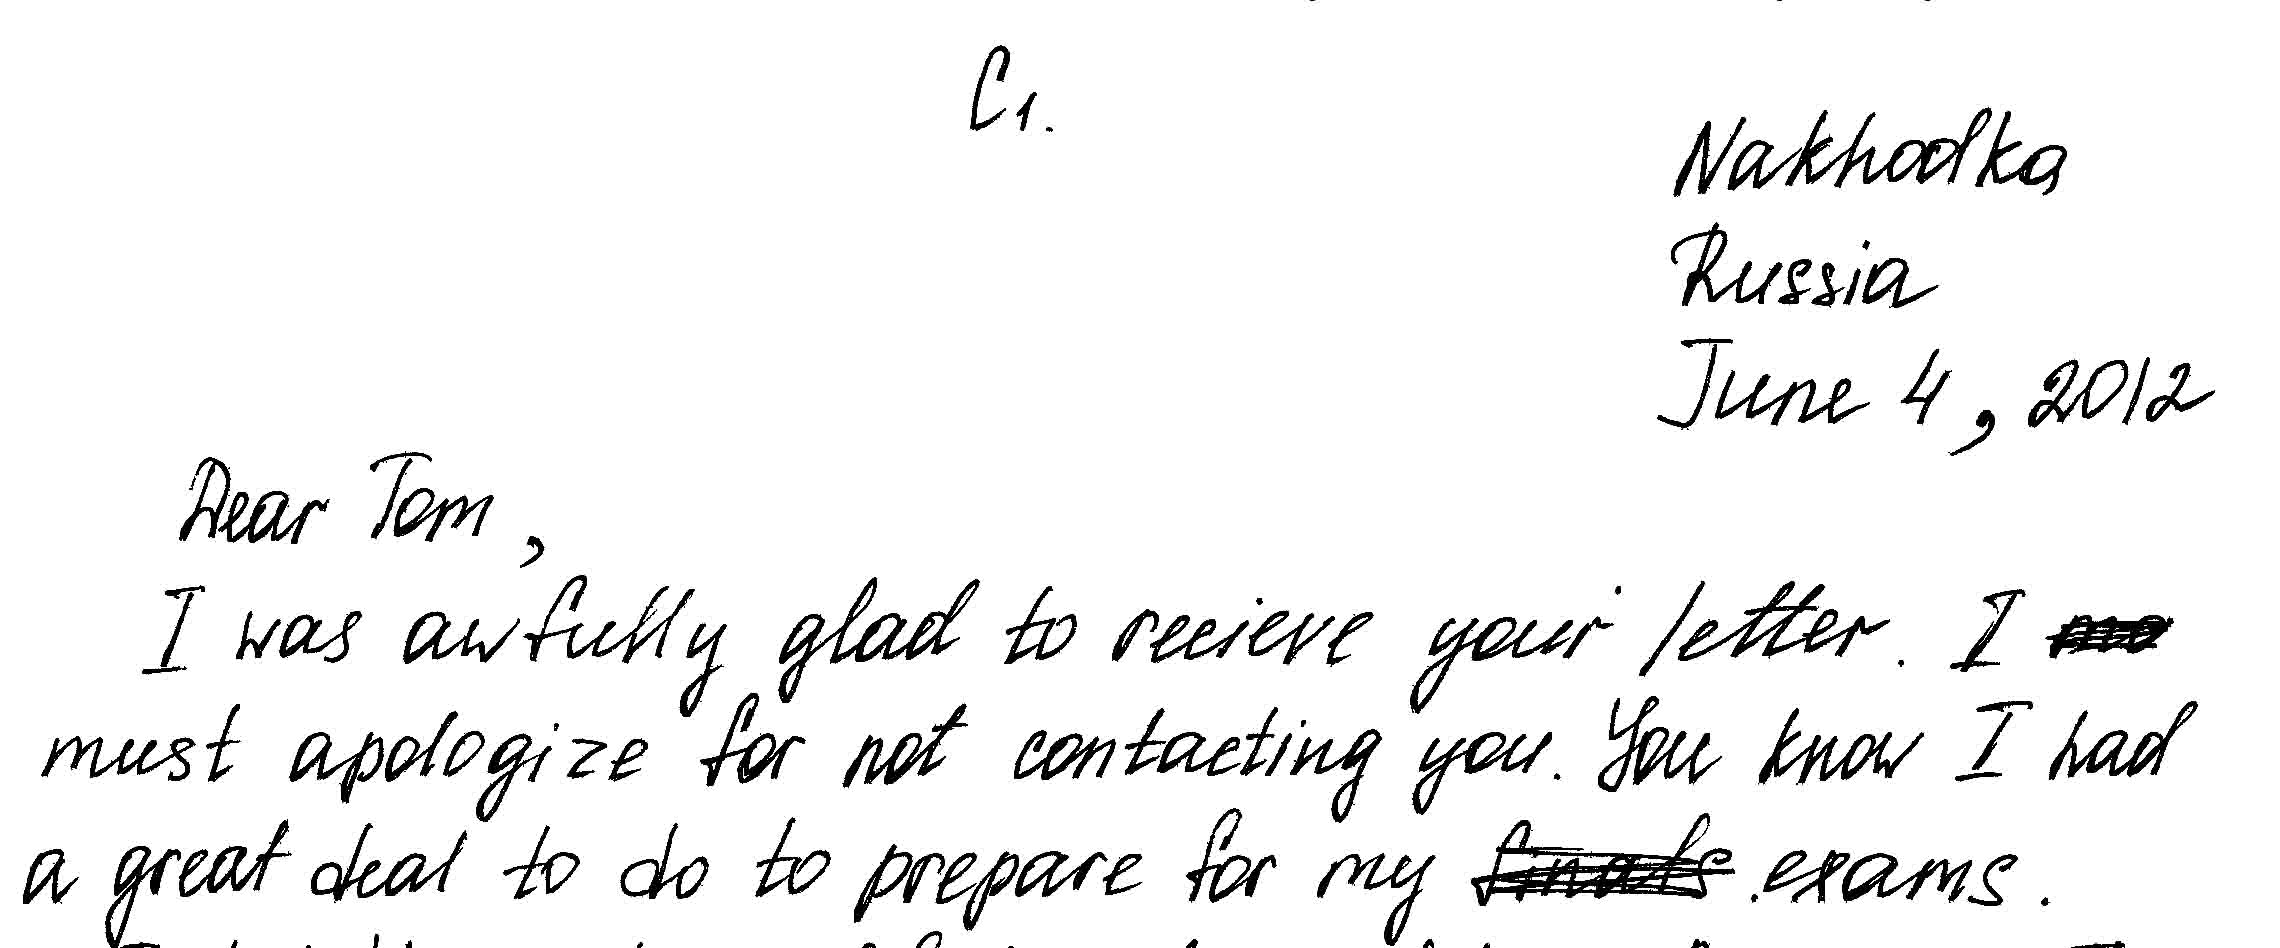 C1.
Nakhodka
Russia
June 4, 2012
Dear Tom,
I was awfully glad to recieve your letter. I
must apologize for not contacting you. You know I had
a great deal to do to prepare for my finals exams.